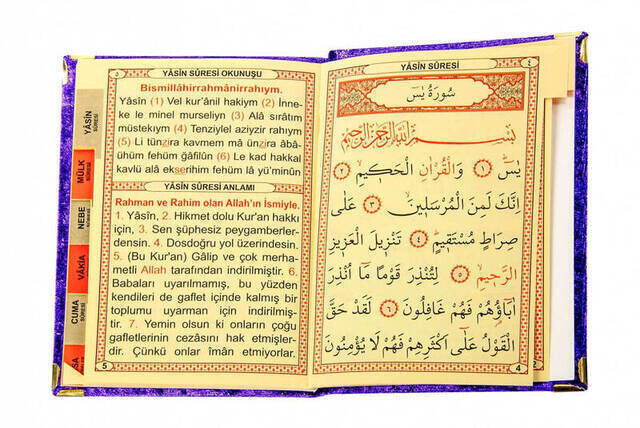 ٤
YÂSÎN SÛRESİ
سُورَةُ يٰسٓ
بِسْمِ اللّٰهِ الرَّحْمٰنِ الرَّحِيمِ
يٰسٓ ﴿١﴾ وَالْقُرْاٰنِ الْحَكِيمِ ﴿٢﴾
اِنَّكَ لَمِنَ الْمُرْسَلِينَ ﴿٣﴾ عَلٰى
صِرَاطٍ مُسْتَقِيمٍ ﴿٤﴾ تَنْزِيلَ الْعَزِيزِ
الرَّحِيمِ ﴿٥﴾ لِتُنْذِرَ قَوْمًا مَٓا اُنْذِرَ
اٰبَٓاؤُ۬هُمْ فَهُمْ غَافِلُونَ ﴿٦﴾ لَقَدْ حَقَّ
الْقَوْلُ عَلٰٓى اَكْثَرِهِمْ فَهُمْ لَا يُؤْمِنُونَ
4
2
٥
YÂSİN SÛRESİ OKUNUŞU
Bismillâhirrahmânirrahıym.
Yâsîn (1) Vel kur'ânil hakiym (2) İnne-
ke le minel murseliyn (3) Alâ sırâtım
müstekıym (4) Tenziylel aziyzir rahıym
(5) Li tünzira kavmem mâ ünzira âbâ-
ühüm fehüm ğâfilûn (6) Le kad hakkal
kavlü alâ ekserihim fehüm lâ yü'minûn
YÂSİN SÛRESİ ANLAMI
Rahman ve Rahim olan Allah'ın İsmiyle.
1. Yâsîn, 2. Hikmet dolu Kur'an hakkı
için, 3. Sen şüphesiz peygamberler-
densin. 4. Dosdoğru yol üzerindesin.
5. (Bu Kur'an) Gâlip ve çok merha-
metli Allah tarafından indirilmiştir. 6.
Babaları uyarılmamış, bu yüzden
kendileri de gaflet içinde kalmış bir
toplumu uyarman için indirilmiş-
tir. 7. Yemin olsun ki onların çoğu
gafletlerinin cezasını hak etmişler-
dir. Çünkü onlar îmân etmiyorlar.
5
YÂSİN
SÛRESİ
MÜLK
SÛRESİ
NEBE
SÛRESİ
VÂKIA
SÛRESİ
CUMA
SÛRESİ